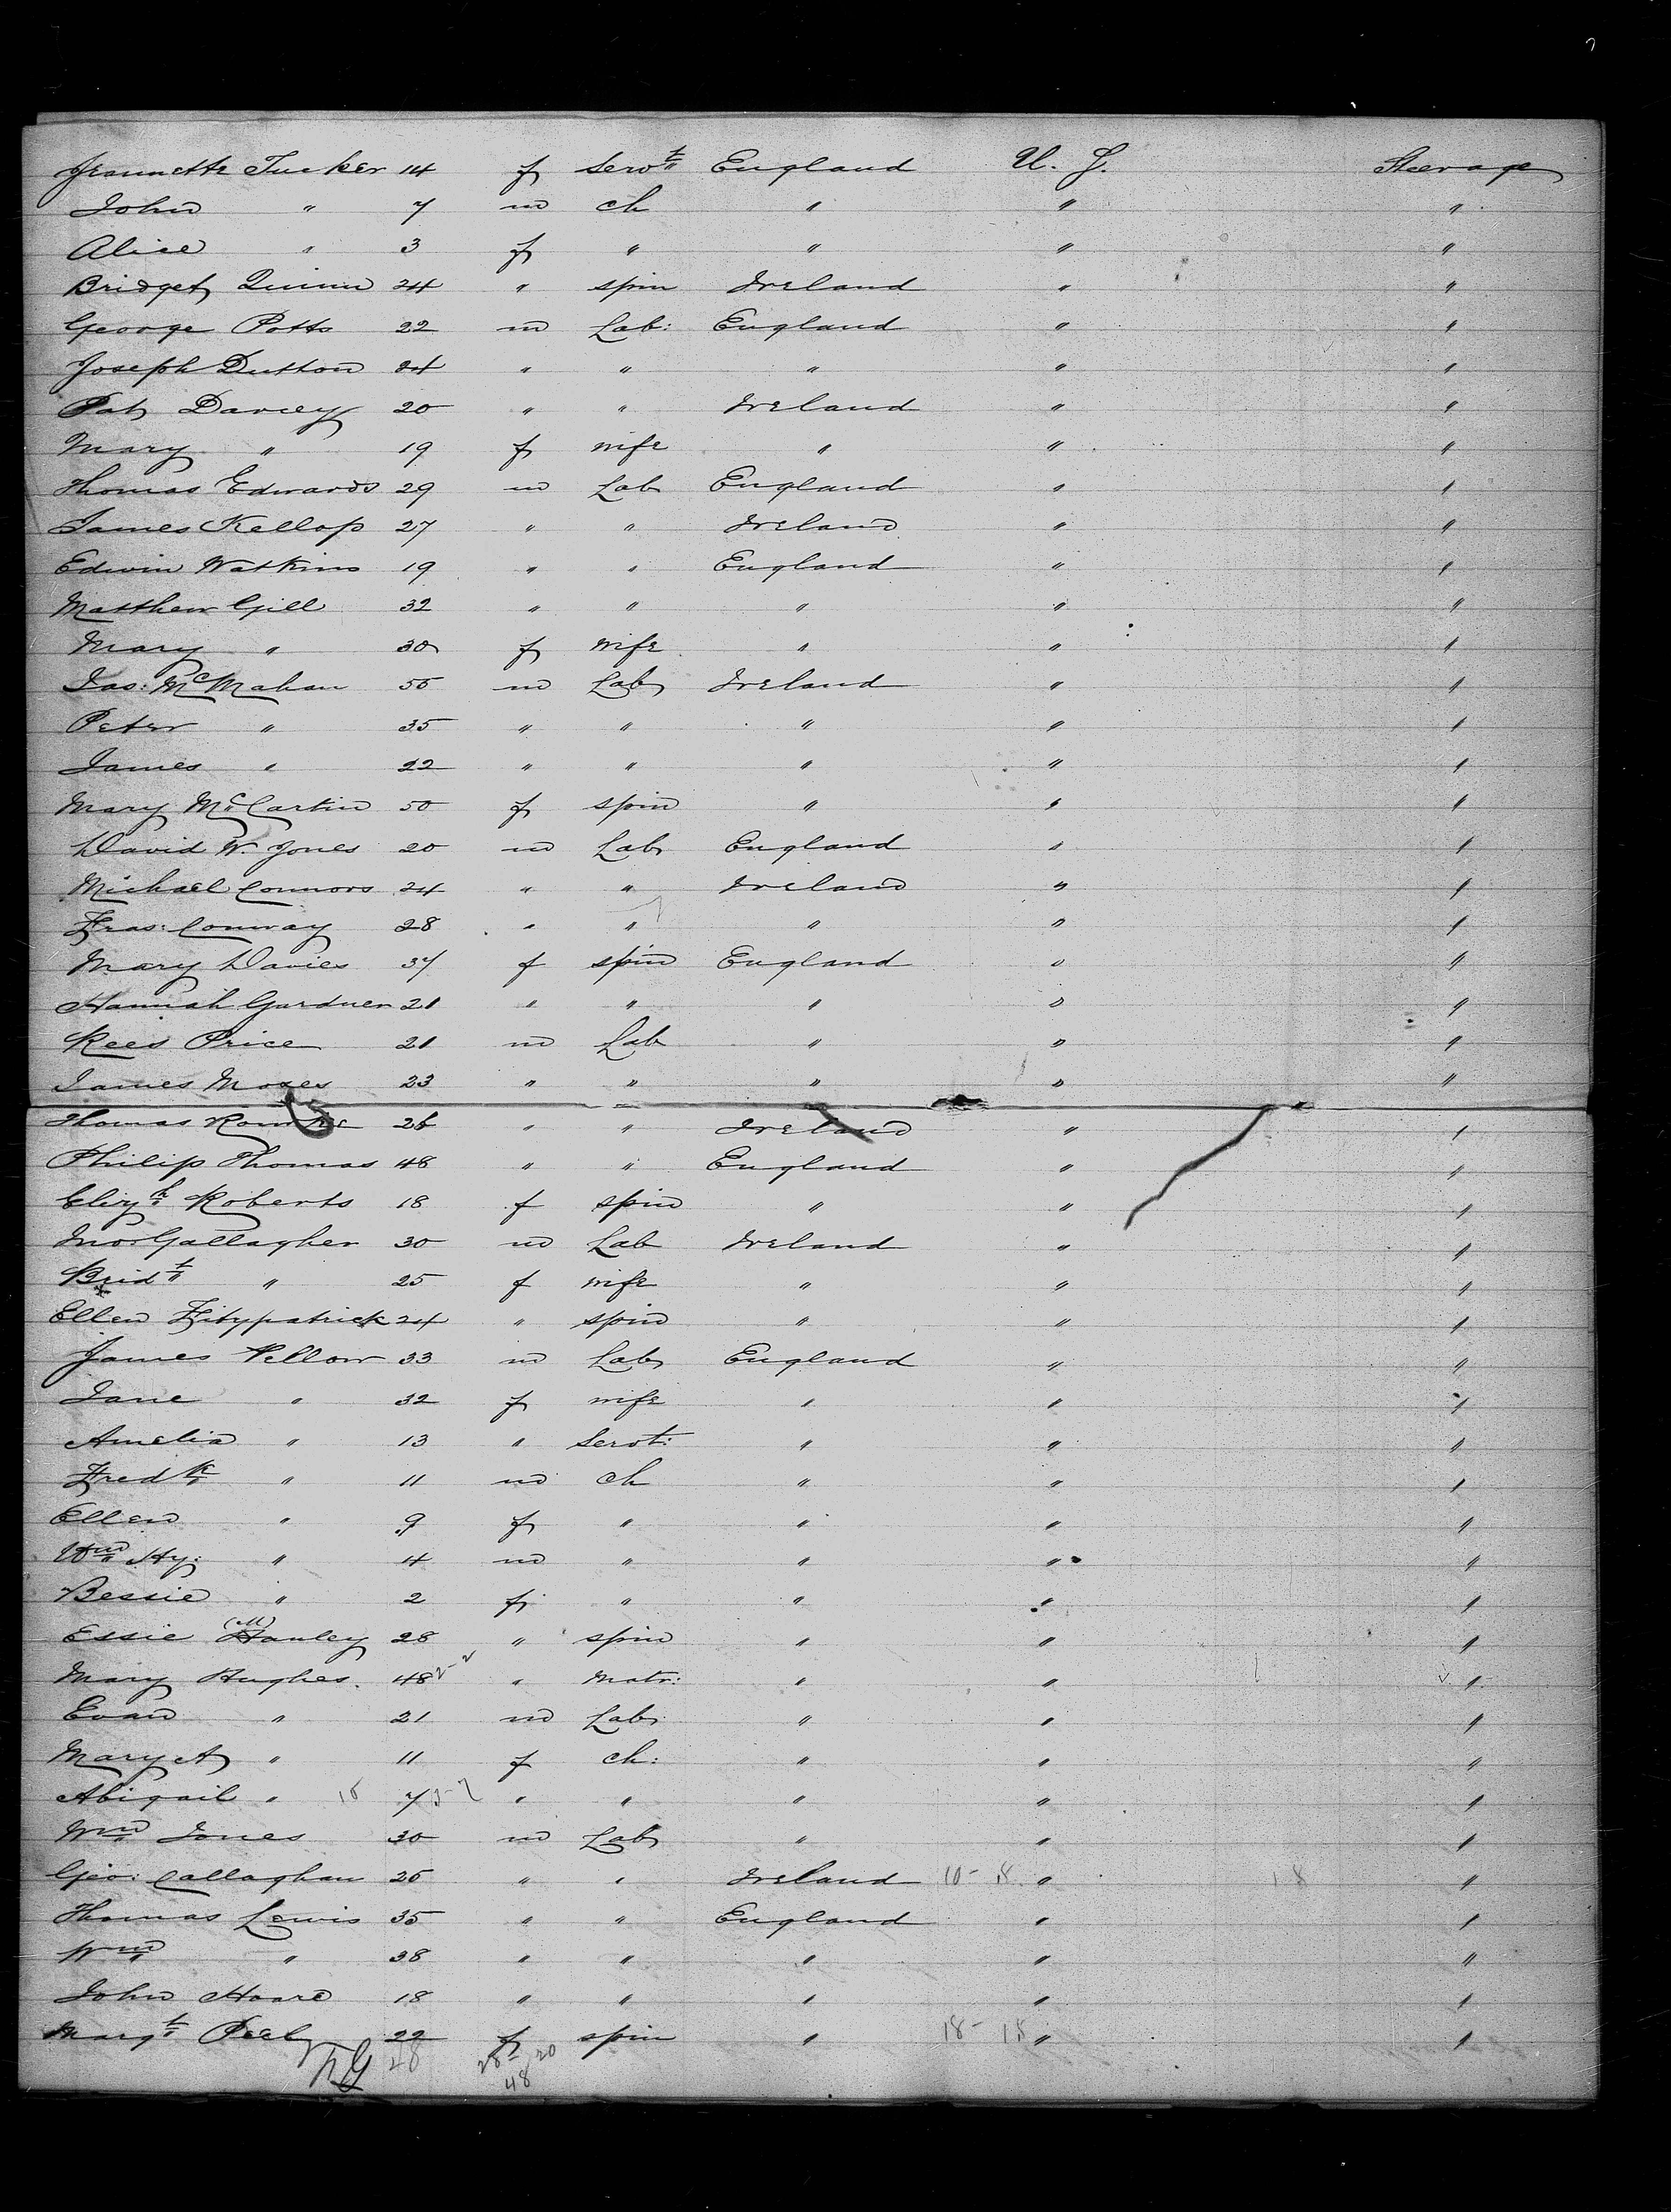 Jeannette Tucker 14 f Servt England U. S. Steerage
John " 7 m ch " " "
Alice " 3 f " " " "
Bridget Quinn 24 " spin Ireland " "
George Potts 22 m Lab: England " "
Joseph Dutton 24 " " " " "
Pat Darcey 20 " " Ireland " "
Mary " 19 f wife " " "
Thomas Edwards 29 m Lab England " "
James Kellop 27 " " Ireland " "
Edwin Watkins 19 " " England " "
Matthew Gill 32 " " " " "
Mary " 30 f wife " " "
Jas: McMahan 55 m Lab Ireland " "
Peter " 35 " " " " "
James " 22 " " " " "
Mary McCartin 50 f spin " " "
David W. Jones 20 m Lab England " "
Michael Connors 24 " " Ireland " "
Fras: Conway 28 " " " " "
Mary Davies 37 f spin England " "
Hannah Gardner 21 " " " " "
Rees Price 21 m Lab " " "
James Moses 23 " " " " "
Thomas 26 " " Ireland " "
Philip Thomas 48 " " England " "
Elizth Roberts 18 f spin " " "
Jno: Gallagher 30 m Lab Ireland " "
Bridt " 25 f wife " " "
Ellen Fitzpatrick 24 " spin " " "
James Vellow 33 m Lab England " "
Jane " 32 f wife " " "
Amelia " 13 " Servt: " " "
Fredk " 11 m ch " " "
Ellen " 9 f " " " "
Wm Hy: " 4 m " " " "
Bessie " 2 f " " " "
Essie (M) Hanley 28 " spin " " "
Mary Hughes. 48 " Matr: " " "
Evan " 21 m Lab " " "
Mary A " 11 f ch: " " "
Abigail " 7 " " " " "
Wm Jones 30 m Lab " " "
Geo: Callaghan 25 " " Ireland 10 - 18 " 18 "
Thomas Lewis 35 " " England " "
Wm " 38 " " " " "
John Hoare 18 " " " " "
Margt Peel 22 f spin " 18 - 18 " "
48 28 20
48